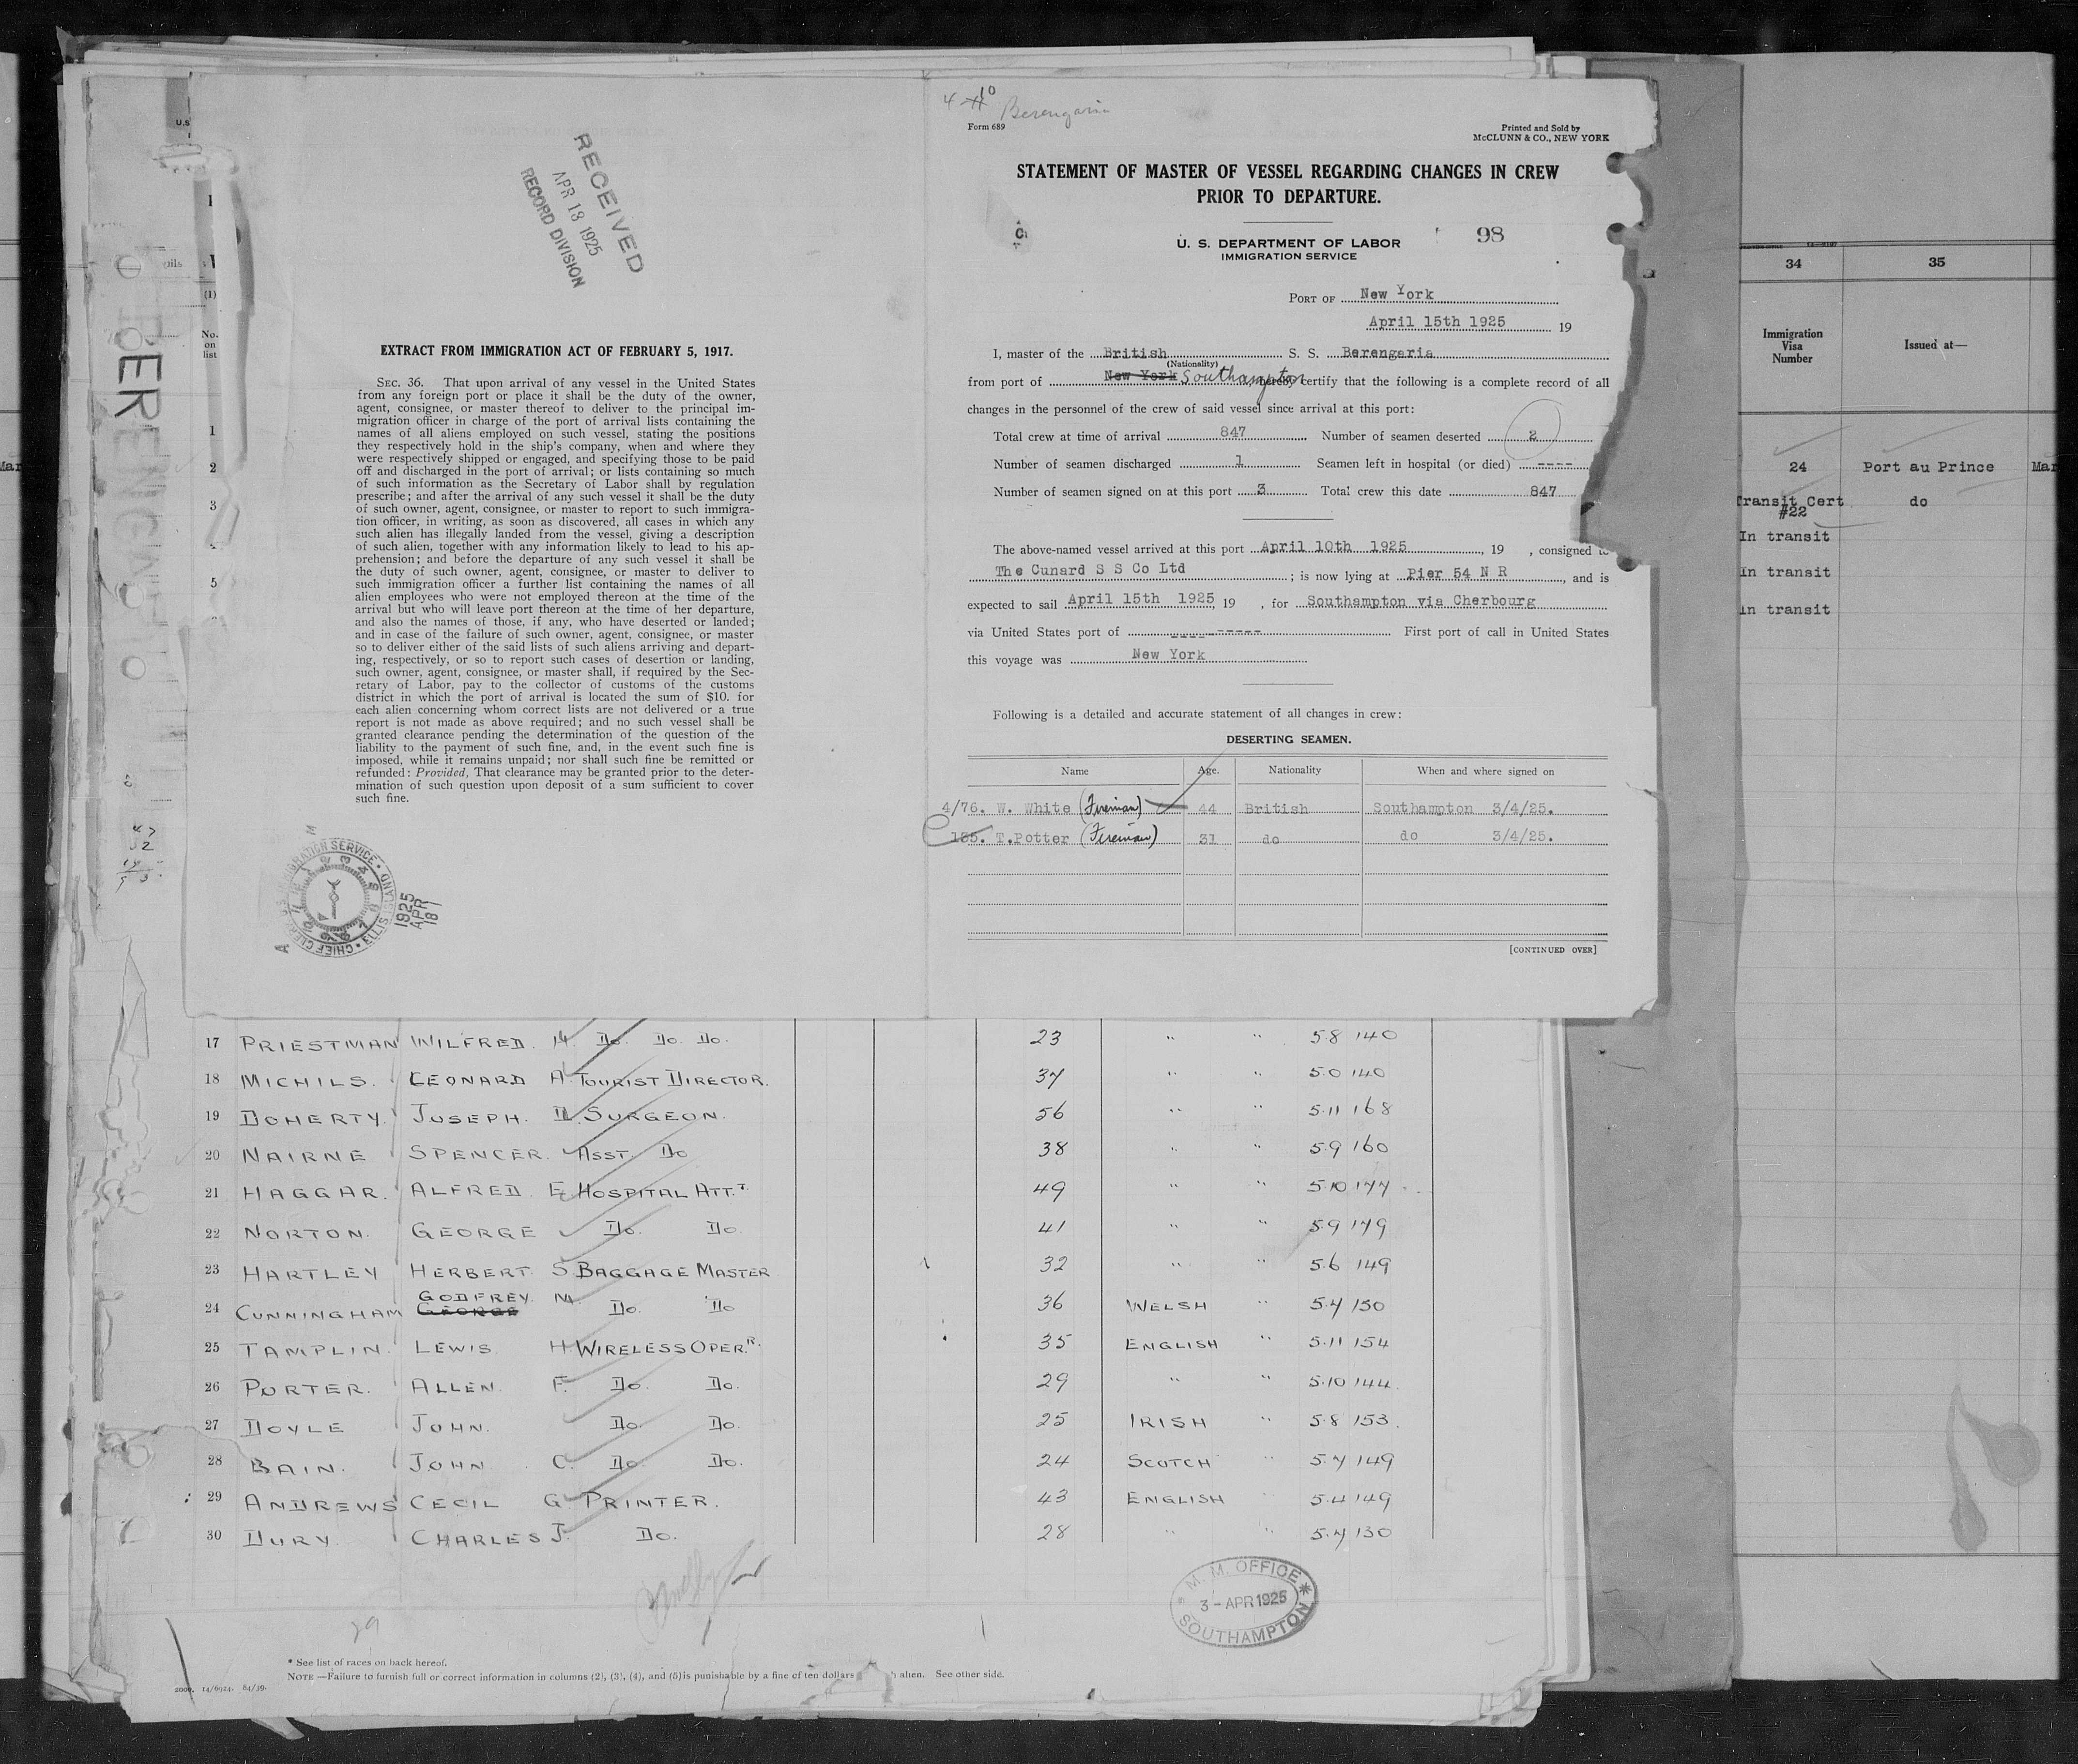 RECEIVED
APR 18 1925
RECORD DIVISION
EXTRACT FROM IMMIGRATION ACT OF FEBRUARY 5, 1917.
SEC. 36. That upon arrival of any vessel in the United States
from any foreign port or place it shall be the duty of the owner,
agent, consignee, or master thereof to deliver to the principal im-
migration officer in charge of the port of arrival lists containing the
names of all aliens employed on such vessel, stating the positions
they respectively hold in the ship's company, when and where they
were respectively shipped or engaged, and specifying those to be paid
off and discharged in the port of arrival; or lists containing so much
of such information as the Secretary of Labor shall by regulation
prescribe; and after the arrival of any such vessel it shall be the duty
of such owner, agent, consignee, or master to report to such immigra-
tion officer, in writing, as soon as discovered, all cases in which any
such alien has illegally landed from the vessel, giving a description
of such alien, together with any information likely to lead to his ap-
prehension; and before the departure of any such vessel it shall be
the duty of such owner, agent, consignee, or master to deliver to
such immigration officer a further list containing the names of all
alien employees who were not employed thereon at the time of the
arrival but who will leave port thereon at the time of her departure,
and also the names of those, if any, who have deserted or landed;
and in case of the failure of such owner, agent, consignee, or master
so to deliver either of the said lists of such aliens arriving and depart-
ing, respectively, or so to report such cases of desertion or landing,
such owner, agent, consignee, or master shall, if required by the Sec-
retary of Labor, pay to the collector of customs of the customs
district in which the port of arrival is located the sum of $10. for
each alien concerning whom correct lists are not delivered or a true
report is not made as above required; and no such vessel shall be
granted clearance pending the determination of the question of the
liability to the payment of such fine, and, in the event such fine is
imposed, while it remains unpaid; nor shall such fine be remitted or
refunded: Provided, That clearance may be granted prior to the deter-
mination of such question upon deposit of a sum sufficient to cover
such fine.
1925
APR
18
4 10 Berengaria
Form 689
Printed and Sold by
McCLUNN & CO., NEW YORK
STATEMENT OF MASTER OF VESSEL REGARDING CHANGES IN CREW
PRIOR TO DEPARTURE.
98
U. S. DEPARTMENT OF LABOR
IMMIGRATION SERVICE
PORT OF New York
April 15th 1925 19
I, master of the British S. S. Berengaria
(Nationality)
from port of New York Southampton hereby certify that the following is a complete record of all
changes in the personnel of the crew of said vessel since arrival at this port:
Total crew at time of arrival 847 Number of seamen deserted 2
Number of seamen discharged 1 Seamen left in hospital (or died) ----
Number of seamen signed on at this port 3 Total crew this date 847
The above-named vessel arrived at this port April 10th 1925, 19 , consigned to
The Cunard S S Co Ltd ; is now lying at Pier 54 N R, and is
expected to sail April 15th 1925, 19 , for Southampton via Cherbourg
via United States port of ----- First port of call in United States
this voyage was New York
Following is a detailed and accurate statement of all changes in crew:
DESERTING SEAMEN.
Name Age. Nationality When and where signed on
4/76. W. White (Fireman) 44 British Southampton 3/4/25.
185. T.Potter (Fireman) 31 do do 3/4/25.
[CONTINUED OVER]
17 PRIESTMAN WILFRED. Do. Do. Do. 23 " " 5.8 140
18 MICHILS. LEONARD A. TOURIST DIRECTOR. 37 " " 5.0 140
19 DOHERTY. JOSEPH. D. SURGEON. 56 " " 5.11 168
20 NAIRNE SPENCER. ASST. Do 38 " " 5.9 160
21 HAGGAR. ALFRED E. HOSPITAL ATT.T 49 " " 5.10 177
22 NORTON. GEORGE Do. Do 41 " " 5.9 179
23 HARTLEY HERBERT S. BAGGAGE MASTER 32 " " 5.6 149
24 CUNNINGHAM GODFREY M. GEORGE Do. Do 36 WELSH " 5.7 150
25 TAMPLIN. LEWIS H WIRELESS OPER.R. 35 ENGLISH " 5.11 154
26 PORTER. ALLEN. F. Do. Do. 29 " " 5.10 144
27 DOYLE JOHN. Do. Do. 25 IRISH " 5.8 153.
28 BAIN. JOHN C. Do. Do. 24 SCOTCH " 5.7 149
29 ANDREWS CECIL G. PRINTER. 43 ENGLISH " 5.4 149
30 DURY. CHARLES J. Do. 28 " " 5.7 130
29
M. M. OFFICE
3 - APR 1925
SOUTHAMPTON
* See list of races on back hereof.
NOTE—Failure to furnish full or correct information in columns (2), (3), (4), and (5) is punishable by a fine of ten dollars alien. See other side.
2000. 14/6924. 84/39.
34 35
Immigration Visa Number
Issued at—
24 Port au Prince Mar
Transit Cert #22 do
In transit
In transit
in transit